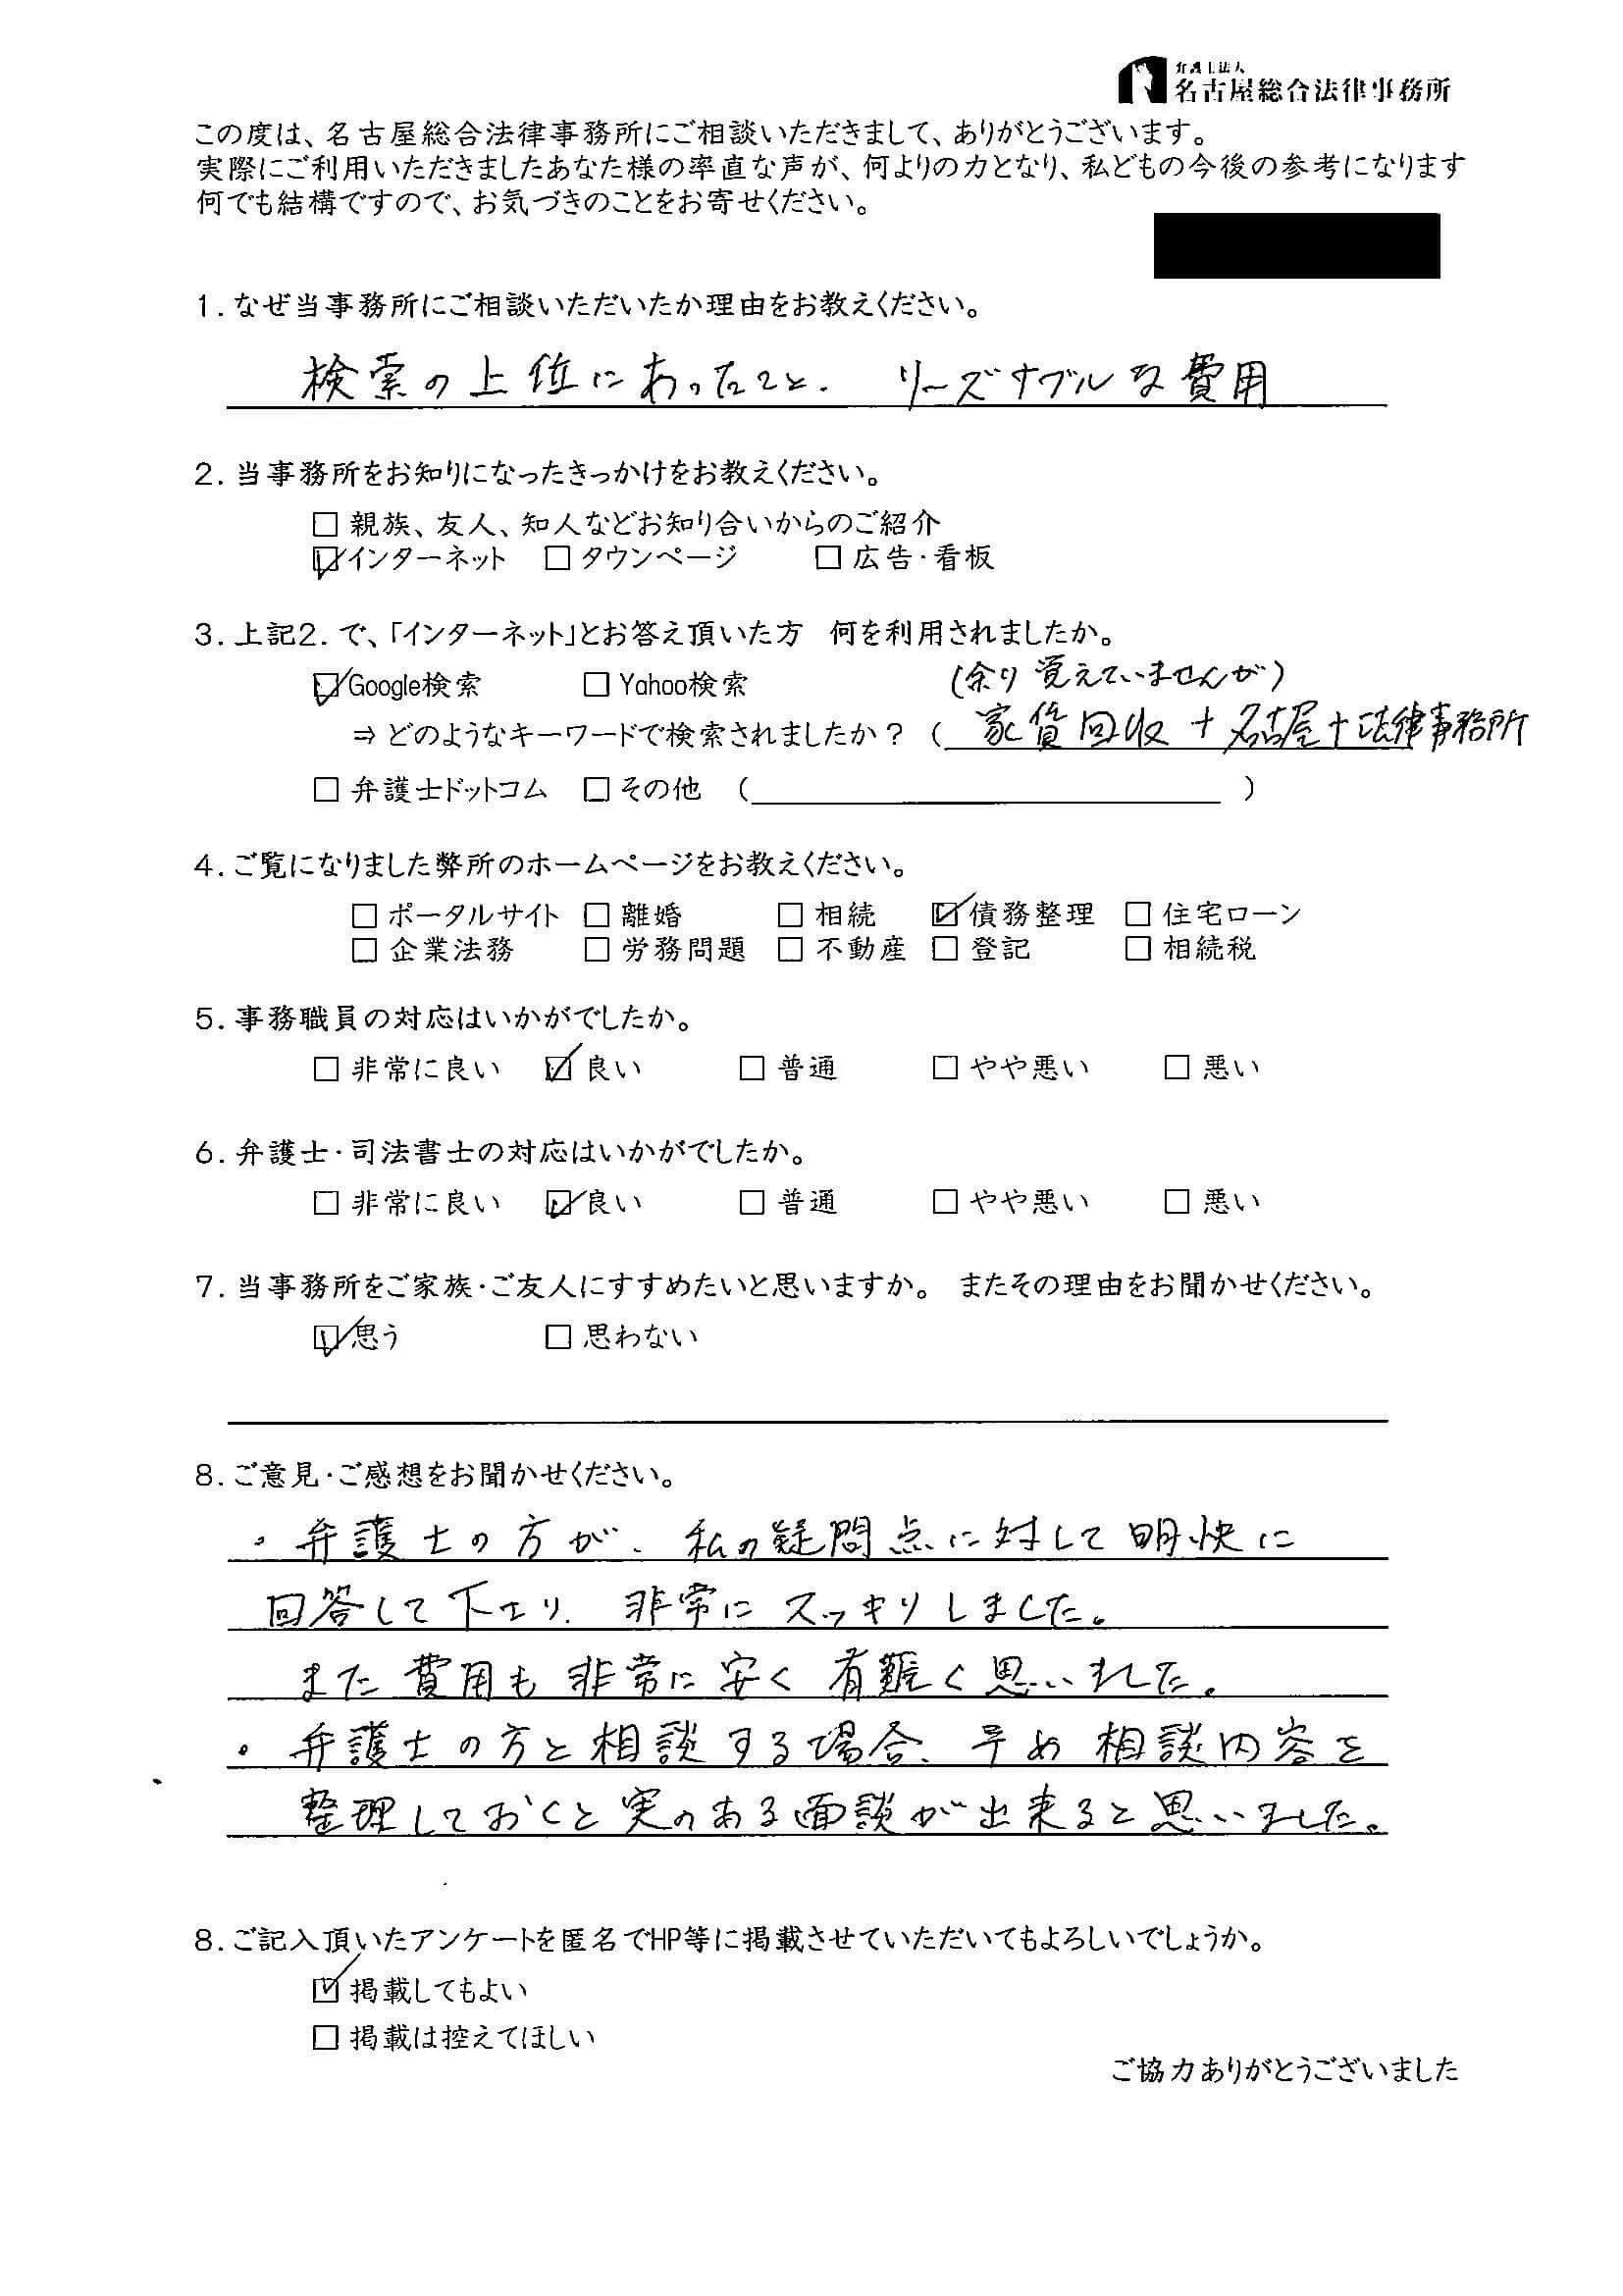 弁護士法人
名古屋総合法律事務所
この度は、名古屋総合法律事務所にご相談いただきまして、ありがとうございます。
実際にご利用いただきましたあなた様の率直な声が、何よりの力となり、私どもの今後の参考になります
何でも結構ですので、お気づきのことをお寄せください。
1. なぜ当事務所にご相談いただいたか理由をお教えください。
検索の上位にあったこと、リーズナブルな費用
2. 当事務所をお知りになったきっかけをお教えください。
□ 親族、友人、知人などお知り合いからのご紹介
☑ インターネット □ タウンページ □ 広告・看板
3. 上記2. で、「インターネット」とお答え頂いた方 何を利用されましたか。
☑ Google検索 □ Yahoo検索 (余り覚えていませんが)
⇒ どのようなキーワードで検索されましたか？ ( 家賃回収 + 名古屋 + 法律事務所
□ 弁護士ドットコム □ その他 ( )
4. ご覧になりました弊所のホームページをお教えください。
□ ポータルサイト □ 離婚 □ 相続 ☑ 債務整理 □ 住宅ローン
□ 企業法務 □ 労務問題 □ 不動産 □ 登記 □ 相続税
5. 事務職員の対応はいかがでしたか。
□ 非常に良い ☑ 良い □ 普通 □ やや悪い □ 悪い
6. 弁護士・司法書士の対応はいかがでしたか。
□ 非常に良い ☑ 良い □ 普通 □ やや悪い □ 悪い
7. 当事務所をご家族・ご友人にすすめたいと思いますか。 またその理由をお聞かせください。
☑ 思う □ 思わない
8. ご意見・ご感想をお聞かせください。
・弁護士の方が、私の疑問点に対して明快に
回答して下さり、非常にスッキリしました。
また費用も非常に安く有難く思いました。
・弁護士の方と相談する場合、予め相談内容を
整理しておくと実のある面談が出来ると思いました。
8. ご記入頂いたアンケートを匿名でHP等に掲載させていただいてもよろしいでしょうか。
☑ 掲載してもよい
□ 掲載は控えてほしい
ご協力ありがとうございました